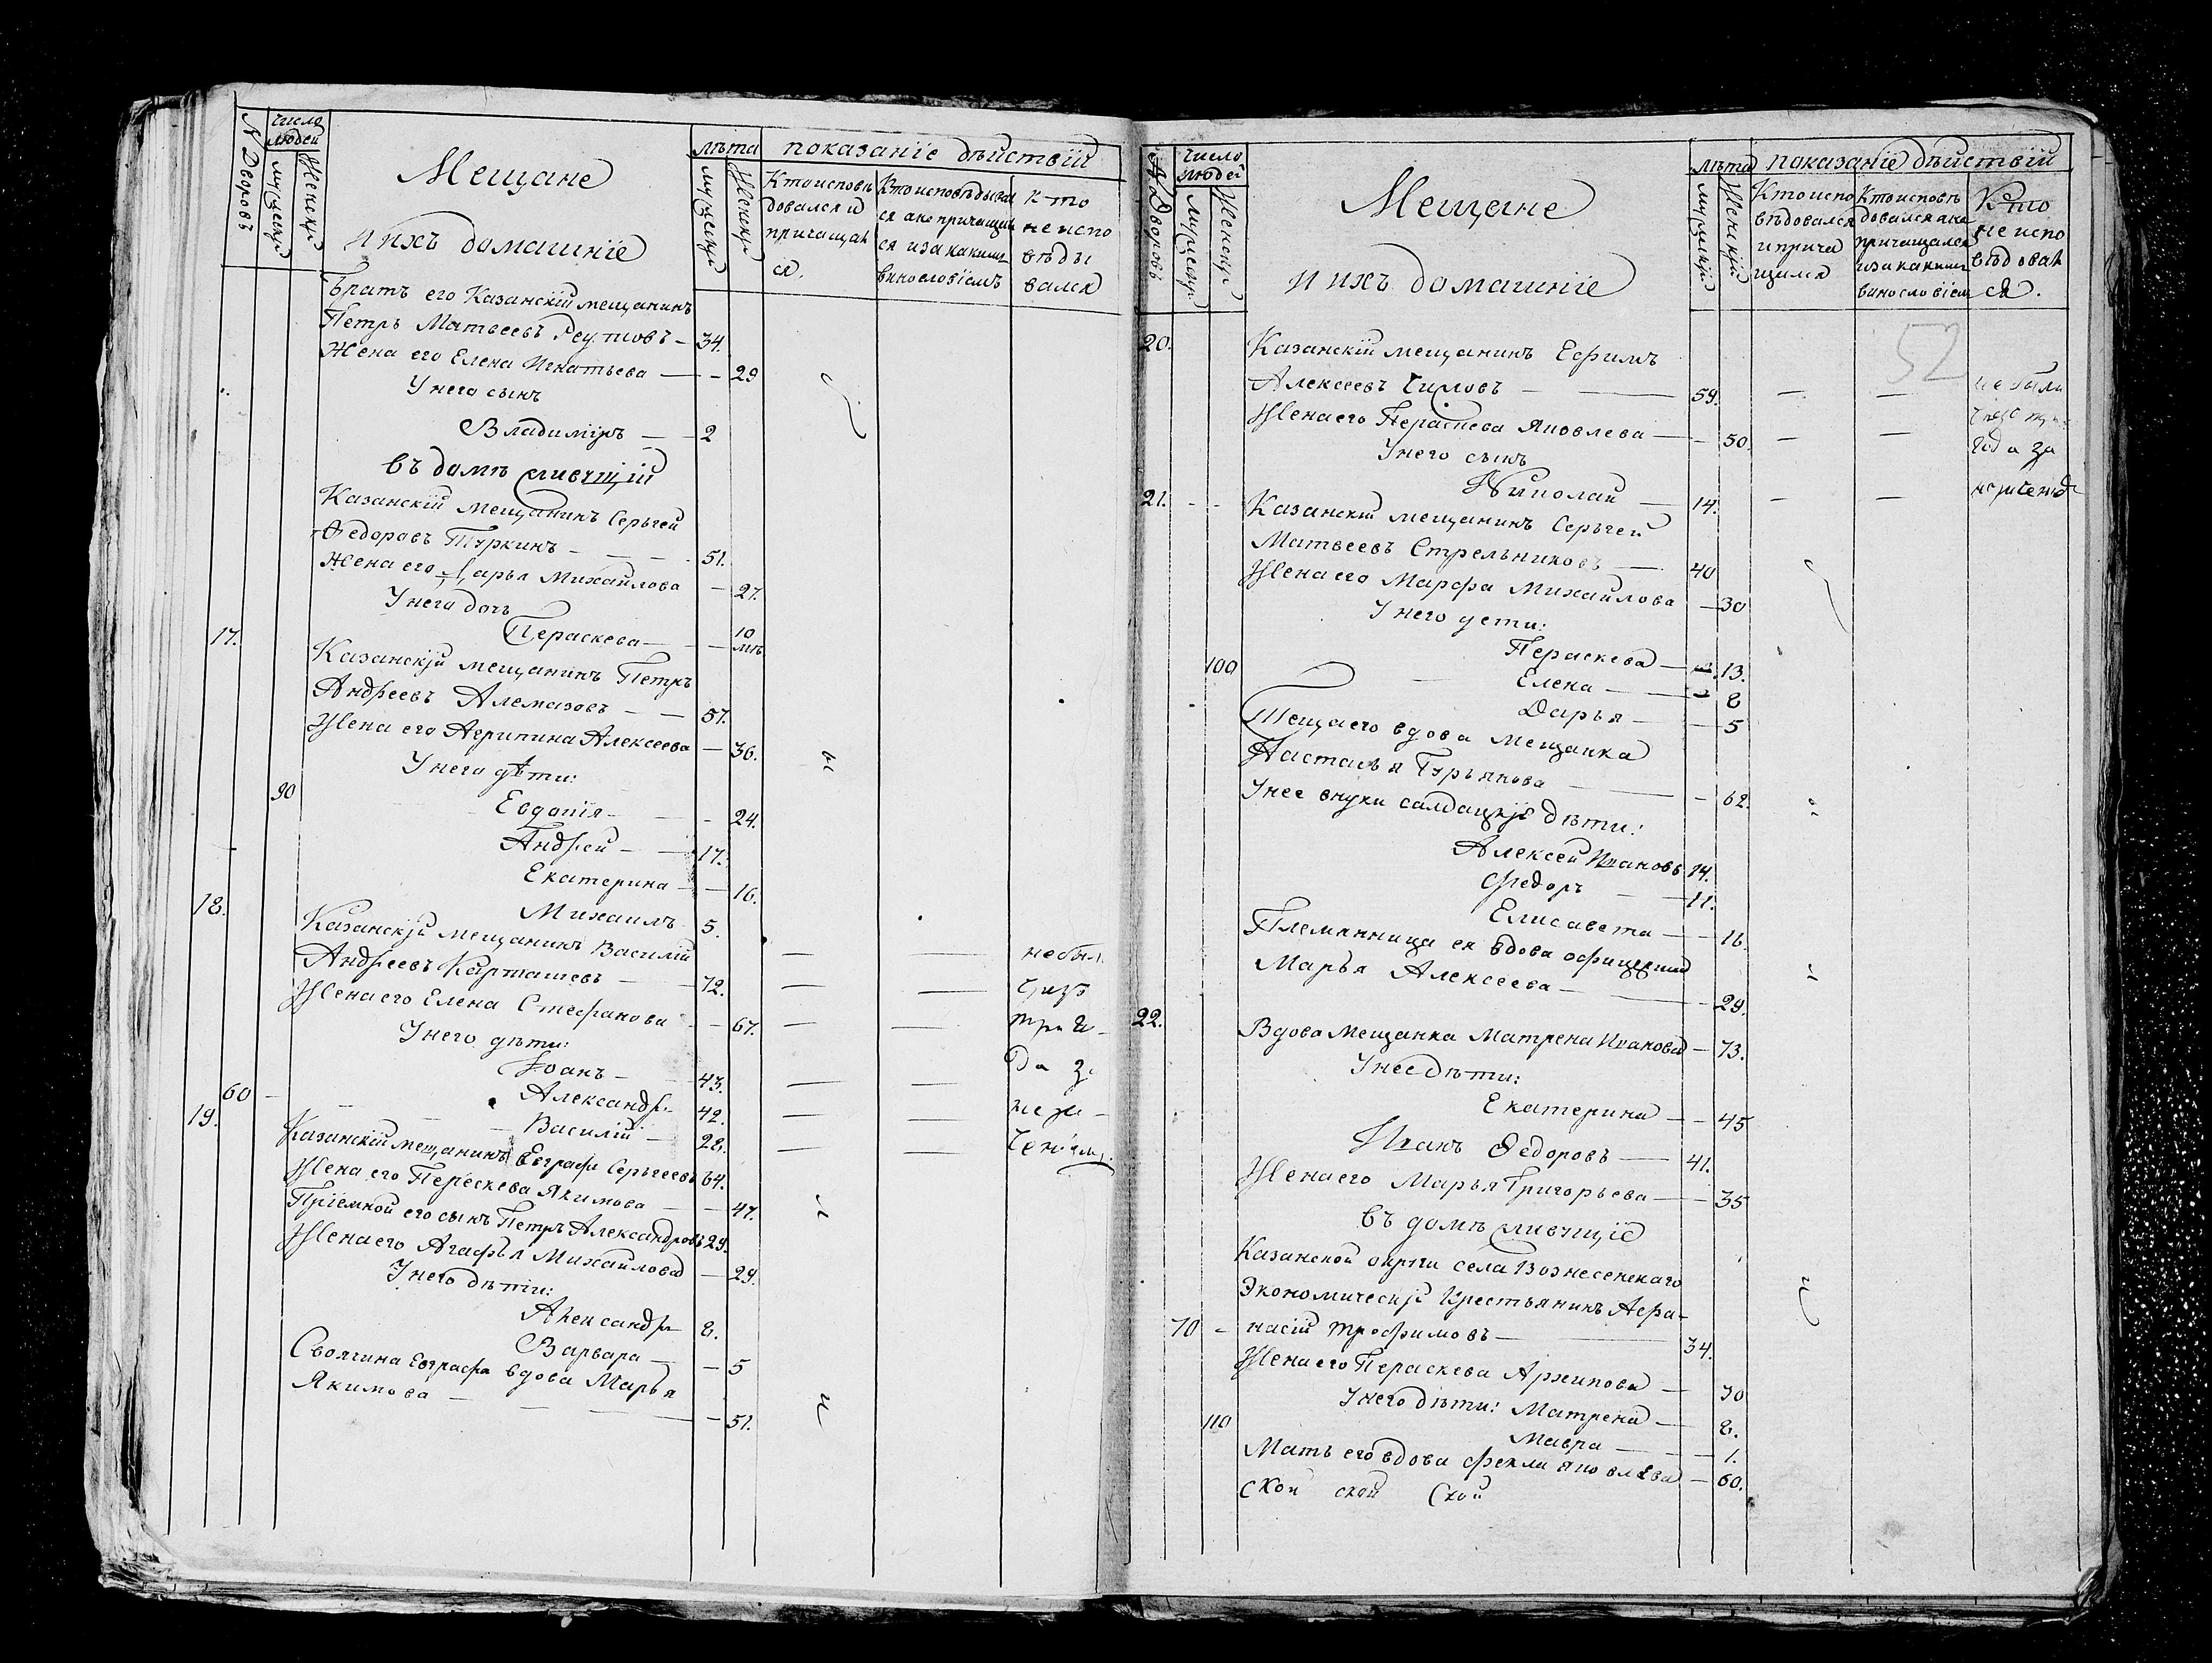 № Дворовъ
число людей
мужескъ
Женскъ
Мещане
и ихъ домашнїе
лѣта
мужескъ
Женскъ
показанїе дѣиствїй
Кто исповѣ
довался и
причащал
ся.
Кто исповѣдывал
ся а не причащил
ся и за какимъ
винословїемъ
кто
не испо
вѣды
вался
Братъ его Казанскїй мещанинъ
Петръ Матвеевъ Реутовъ – 34.
Жена его Елена Игнатьева – – 29
У него сынъ
Владимїръ – – 2
въ домѣ живущїй
Казанскїй Мещанинъ Серьгей
Ѳедоровъ Туркинъ – – – 51.
Жена его Дарья Михайлова – 27.
У него дочь
Пераскева – – 10
17.
Казанскїй мещанинъ Петръ
Андреевъ Алемазовъ – – 57.
Жена его Агрипина Алексеева – 36.
У него дѣти:
90
Евдокїя – – 24.
Андрей – – 17.
Екатерина – – 16.
Михаилъ 5.
18.
Казанскїй мещанинъ Василїй
Андреевъ Карташевъ – – 72. – –
Жена его Елена Стефанова – 67. – –
У него дѣти:
Іоанъ – 43. – –
60 – Александръ 42. – –
Василїй – 22. – –
не был
чрезъ
три го
да за
не ра
ченїемъ.
19.
Казанскїй мещанинъ Евграфъ Серьгеевъ 64.
Жена его Перескева Якимова – – 47.
Прїемной его сынъ Петръ Александровъ 29.
Жена его Агафья Михайлова – 29.
У него дѣти:
Александръ 8.
Варвара – – 5
Своячина Евграфа вдова Марья
Якимова – – – – 51.
№ Дворовъ
число людей
мужескъ
Женскъ
Мещане
и ихъ домашнїе
лѣта
мужескїй
Женскїй
показанїе дѣиствїй
Кто испо
вѣдовался
и прича
щился
Кто исповѣ
довался а не
причащался
и за какимъ
винословїем
Кто
не испо
вѣдовал
ся.
52
20.
Казанскїй мещанинъ Ефимъ
Алексеевъ Чиловъ – – 59. – – не были
Жена его Пераскева Яковлева – – 50. – –
У него сынъ года за
Николай – 14. – –
21. – –
Казанскїй мещанинъ Серьгей
Матвеевъ Стрельниковъ – 40
Жена его Марфа Михайлова – 30
У него дети:
Пераскева – 13.
100
Елена – – 8
Дарья – – 5
Теща его вдова мещанка
Настасья Гурьянова – – – 62.
У нее внуки салдацкїе дѣти:
Алексей Ивановъ 14.
Федоръ – 11.
Елисавета – – 16
Племянница ея вдова офицерша
Марья Алексеева – – – 29.
22.
Вдова Мещанка Матрена Иванова – 73.
У нее дѣти:
Екатерина – – 45
Иванъ Ѳедоровъ – 41.
Жена его Марья Григорьева – – 35
въ домѣ живущїе
Казанской округи села Вознесенскаго
Экономическїй Крестьянинъ Афа-
70 – насїй Трофимовъ – – 34.
Жена его Пераскева Архипова – 30
У него дѣти: Матрена – 8.
110
Мавра – – 1.
Мать его вдова Фекла Яковлева – 60.
ской ской Ской